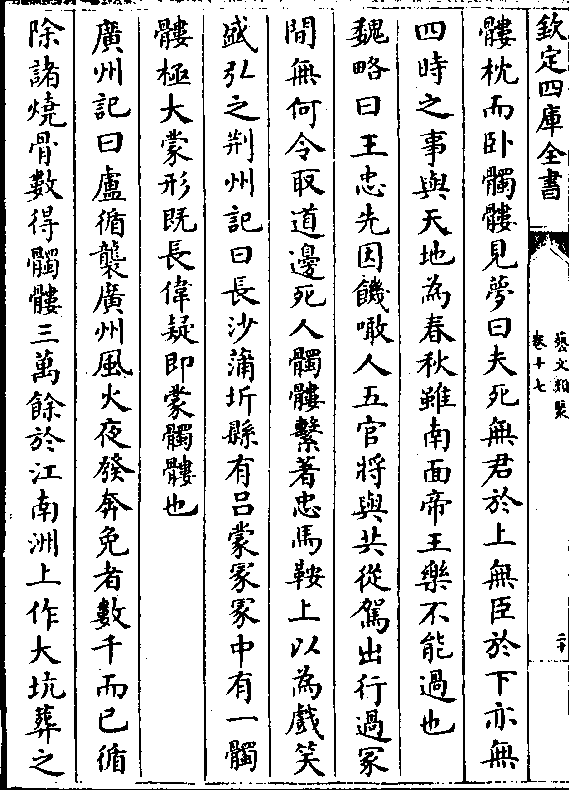 欽定四庫全書
藝文類聚
卷十七
二十
髏枕而卧髑髏見夢曰夫死無君於上無臣於下亦無
四時之事與天地為春秋雖南面帝王樂不能過也
魏略曰王忠先因饑噉人五官將與共從駕出行過冢
間無何令取道邊死人髑髏繫著忠馬鞍上以為戲笑
盛弘之荆州記曰長沙蒲圻縣有吕蒙冢冢中有一髑
髏極大蒙形既長偉疑即蒙髑髏也
廣州記曰盧循襲廣州風火夜發奔免者數千而已循
除諸燒骨數得髑髏三萬餘於江南洲上作大坑葬之